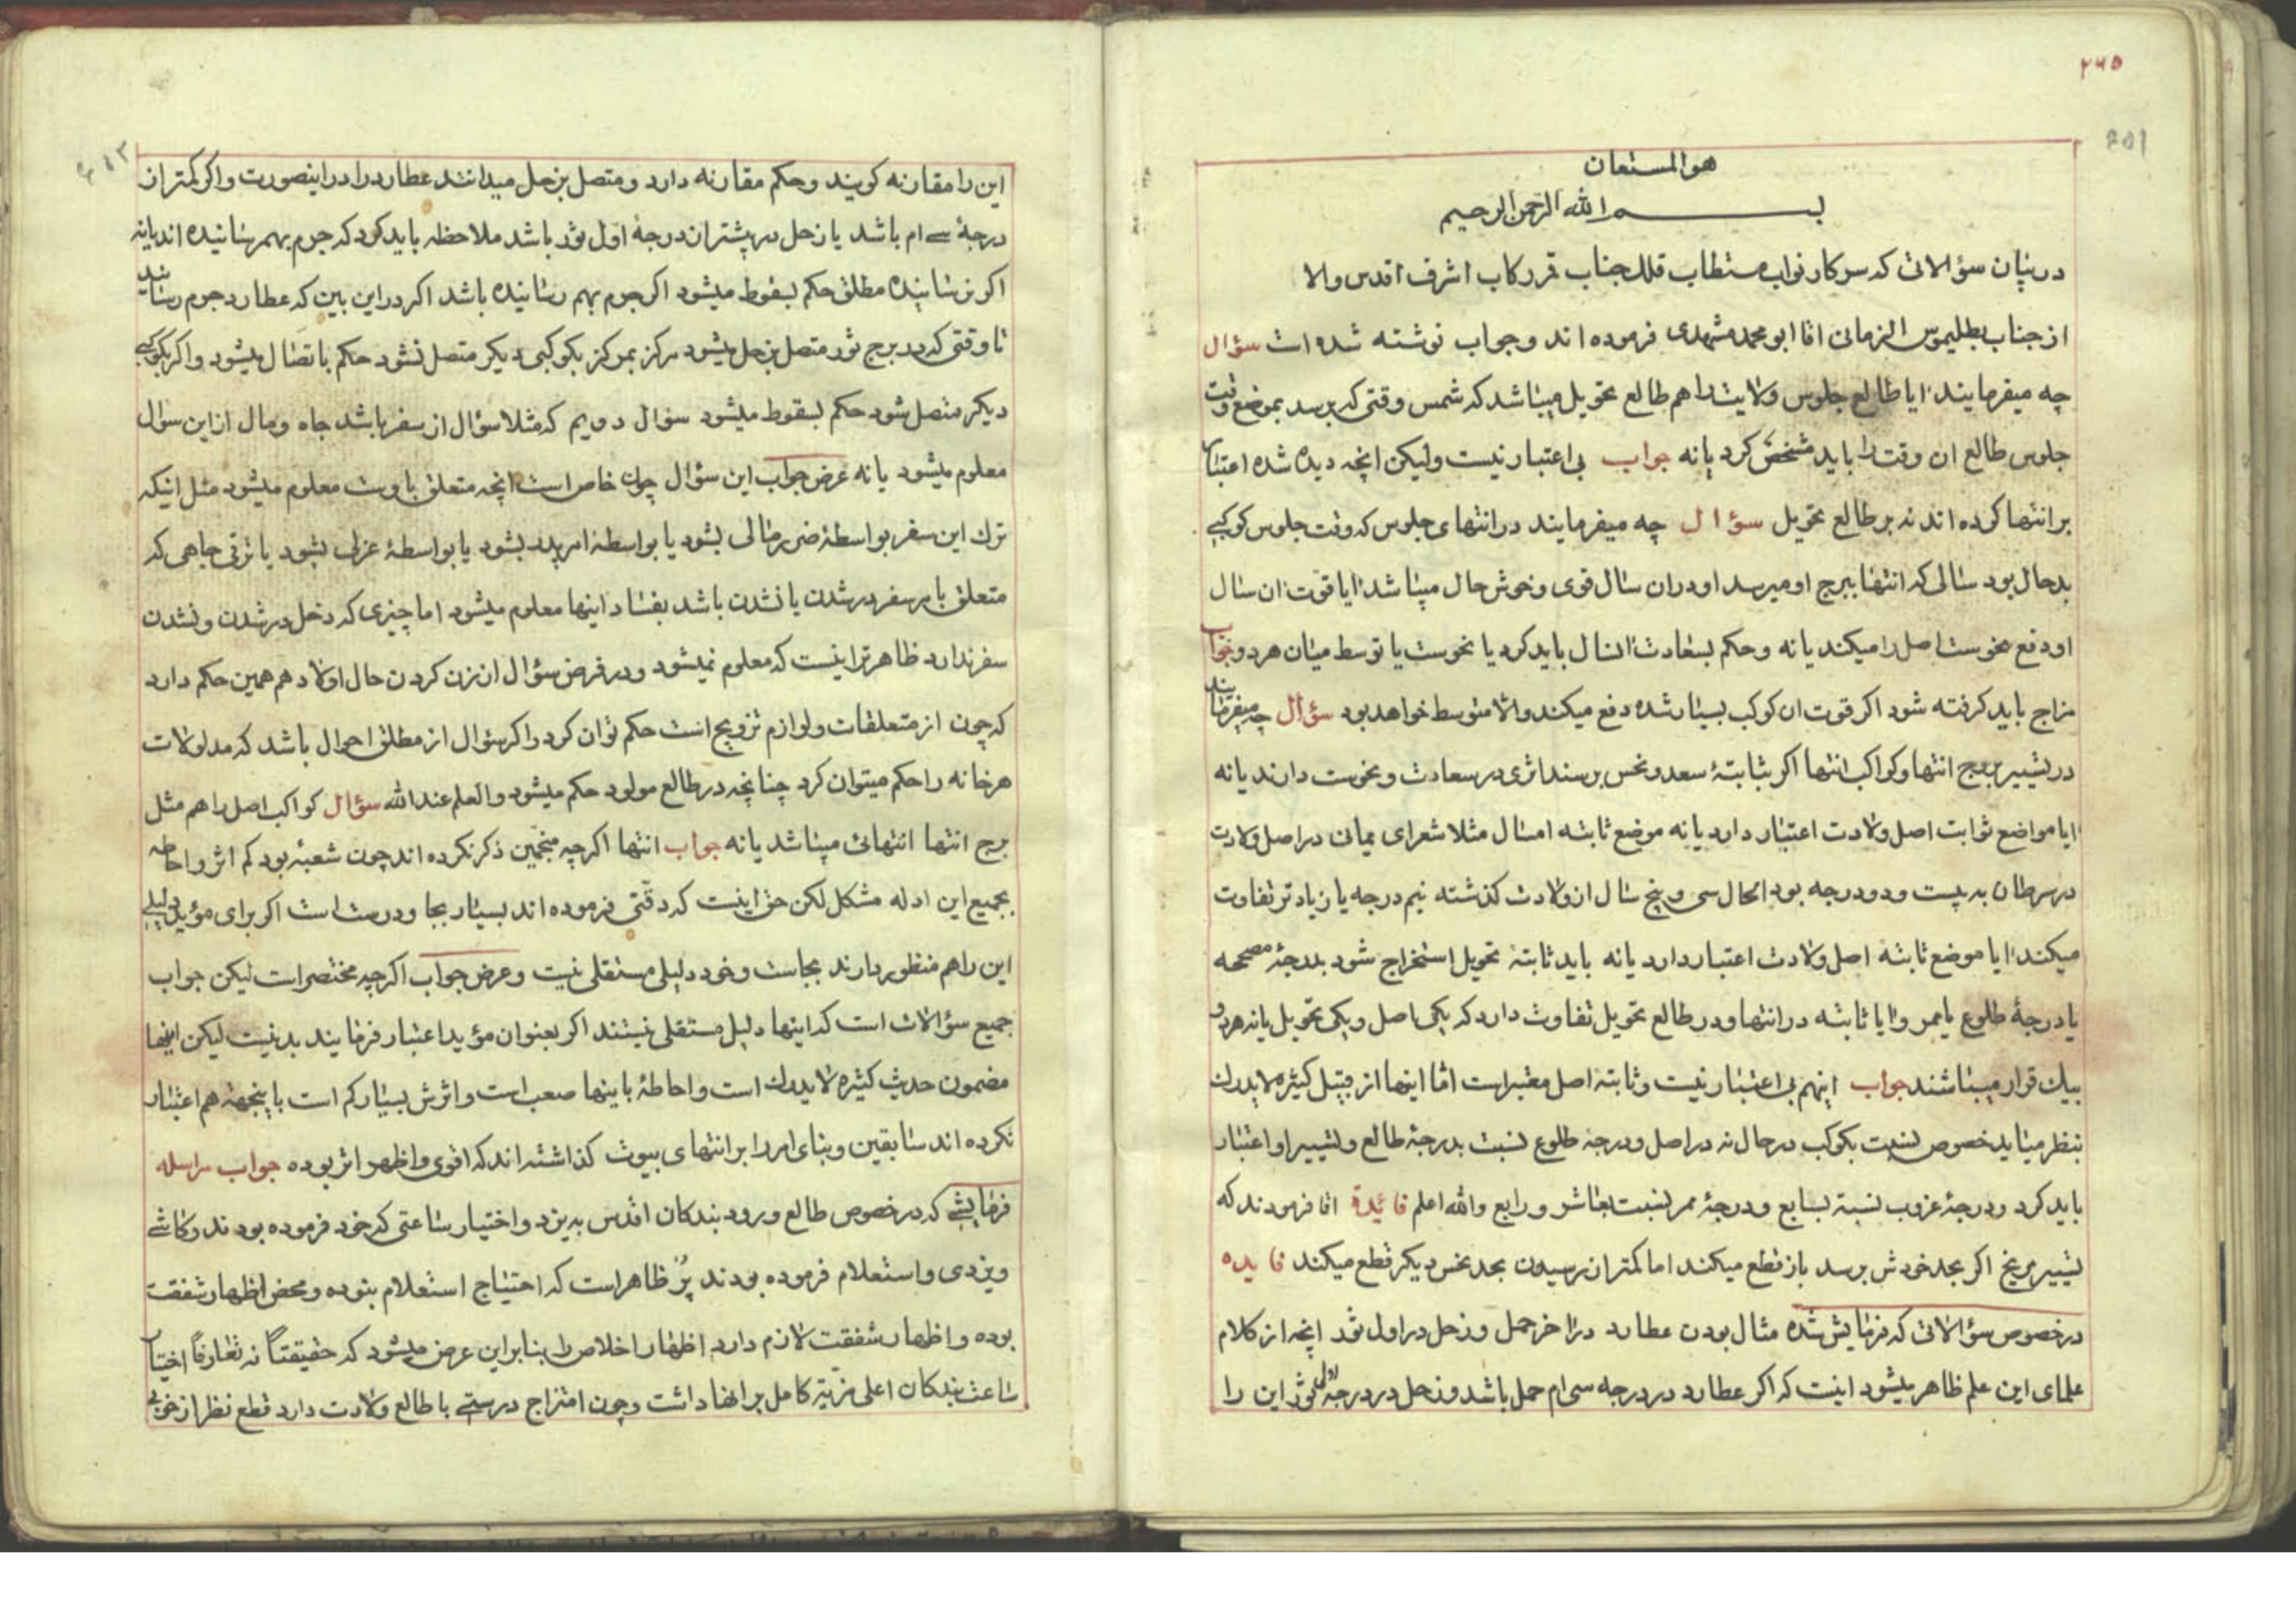 ۲۶۵
هو المستعان
بسم الله الرحمن الرحیم
در بیان سؤالاتی که سرکار نواب مستطاب فلک جناب قمر رکاب اشرف اقدس والا
از جناب بطلیموس الزمانی اقا ابو محمد مشهدی فرموده اند و جواب نوشته شده است سؤال
چه میفرمایند ایا طالع جلوس ولایت را هم طالع تحویل میباشد که شمس وقتی که برسد بموضع وقت
جلوس طالع ان وقت را باید مشخص کرد یا نه جواب بی اعتبار نیست ولیکن انچه دیده شده اعتبار
بر انتها کرده اند نه بر طالع تحویل سؤال چه میفرمایند در انتهای جلوس که وقت جلوس کوکبی
بدحال بود سالی که انتها ببرج او میرسد او دران سال قوی و خوش حال میباشد ایا قوت ان سال
او دفع نحوست اصل را میکند یا نه و حکم بسعادت انسال باید کرد یا نحوست یا توسط میان هر دو جواب
مزاج باید کرفته شود اکر قوت ان کوکب بسیار شده دفع میکند والا متوسط خواهد بود سؤال چه میفرمایند
در تسییر بروج انتها و کواکب انتها اکر بثابتهٔ سعد و نحس برسند اثری در سعادت و نحوست دارند یا نه
ایا مواضع ثوابت اصل ولادت اعتبار دارد یا نه موضع ثابته امسال مثلا شعرای یمانی در اصل ولادت
در سرطان به بیست و دو درجه بود الحال سی و پنج سال از ولادت کذشته نیم درجه یا زیادتر تفاوت
میکند ایا موضع ثابته اصل ولادت اعتبار دارد یا نه باید ثابتهٔ تحویل استخراج شود بدرجهٔ مصححه
یا درجهٔ طلوع یا ممر و ایا ثابته در انتها و در طالع تحویل تفاوت دارد که یکی اصل و یکی تحویل یا نه هردو
بیک قرار میباشند جواب اینهم بی اعتبار نیست و ثابتهٔ اصل معتبر است اما اینها از قبیل کثیره لا یدرک
بنظر میاید خصوص نسبت بکوکب در حال نه در اصل و درجهٔ طلوع نسبت بدرجهٔ طالع و تسییر او اعتبار
باید کرد و درجهٔ غروب نسبة بسابع و درجهٔ ممر نسبت بعاشر و رابع والله اعلم فائدة اقا فرمودند که
تسییر مریخ اکر بحد خودش برسد باز قطع میکند اما کمتر از رسیدن بحد نحس دیکر قطع میکند فایده
در خصوص سؤالاتی که فرمایش شده مثال بودن عطارد در اخر حمل و زحل در اول ثور انچه از کلام
علمای این علم ظاهر میشود اینست که اکر عطارد در درجه سی ام حمل باشد و زحل در درجهٔ اول ثور این را
این را مقارنه کویند و حکم مقارنه دارد و متصل بزحل میدانند عطارد را در اینصورت و اکر کمتر از
درجهٔ سی ام باشد یا زحل در بیشتر از درجهٔ اول ثور باشد ملاحظه باید کرد که جرم بهم رسانیده اند یا نه
اکر نرسانیده مطلق حکم بسقوط میشود اکر جرم بهم رسانیده باشد اکر در این بین که عطارد جرم رسانیده
تا وقتی که در برج ثور متصل بزحل میشود مرکز بمرکز بکوکبی دیکر متصل نشود حکم باتصال میشود و اکر بکوکبی
دیکر متصل شود حکم بسقوط میشود سؤال دویم که مثلا سؤال از سفر باشد جاه و مال از این سؤال
معلوم میشود یا نه عرض جواب این سؤال چون خاص است انچه متعلق باوست معلوم میشود مثل اینکه
ترک این سفر بواسطهٔ ضرر مالی بشود یا بواسطهٔ امر پدر بشود یا بواسطهٔ عزلی بشود یا ترقی جاهی که
متعلق بامر سفر در شدن یا نشدن باشد بفساد اینها معلوم میشود اما چیزی که دخل در شدن و نشدن
سفر ندارد ظاهرتر اینست که معلوم نمیشود و در فرض سؤال از زن کردن حال اولاد هم همین حکم دارد
که چون از متعلقات و لوازم تزویج است حکم توان کرد و اکر سؤال از مطلق احوال باشد که مدلولات
هر خانه را حکم میتوان کرد چنانچه در طالع مولود حکم میشود والعلم عند الله سؤال کواکب اصل را هم مثل
برج انتها انتهائی میباشد یا نه جواب انتها اکرچه منجمین ذکر نکرده اند چون شعبهٔ بود کم اثر و احاطه
بجمیع این ادله مشکل لکن حق اینست که دقتی فرموده اند بسیار بجا و درست است اکر برای مؤید دلیلی
این را هم منظور دارند بجاست و خود دلیلی مستقلی نیست و عرض جواب اکرچه مختصر است لیکن جواب
جمیع سؤالات است که اینها دلیل مستقلی نیستند اکر بعنوان مؤید اعتبار فرمایند بد نیست لیکن اینها
مضمون حدیث کثیره لا یدرک است و احاطهٔ باینها صعب است و اثرش بسیار کم است باینجهة هم اعتبار
نکرده اند سابقین و بنای امر را بر انتهای بیوت کذاشته اند که اقوی و اظهر اثر بوده جواب مراسله
فرمایشی که در خصوص طالع ورود بندکان اقدس به یزد و اختیار ساعتی که خود فرموده بودند و کاشی
و یزدی و استعلام فرموده بودند پر ظاهر است که احتیاج استعلام نبوده و محض اظهار شفقت
بوده و اظهار شفقت لازم دارد اظهار اخلاص را بنابراین عرض میشود که حقیقتاً نه تعارفاً اختیار
ساعت بندکان اعلی مزیة کامل بر انها داشت و چون امتزاج درستی با طالع ولادت دارد قطع نظر از خوبی